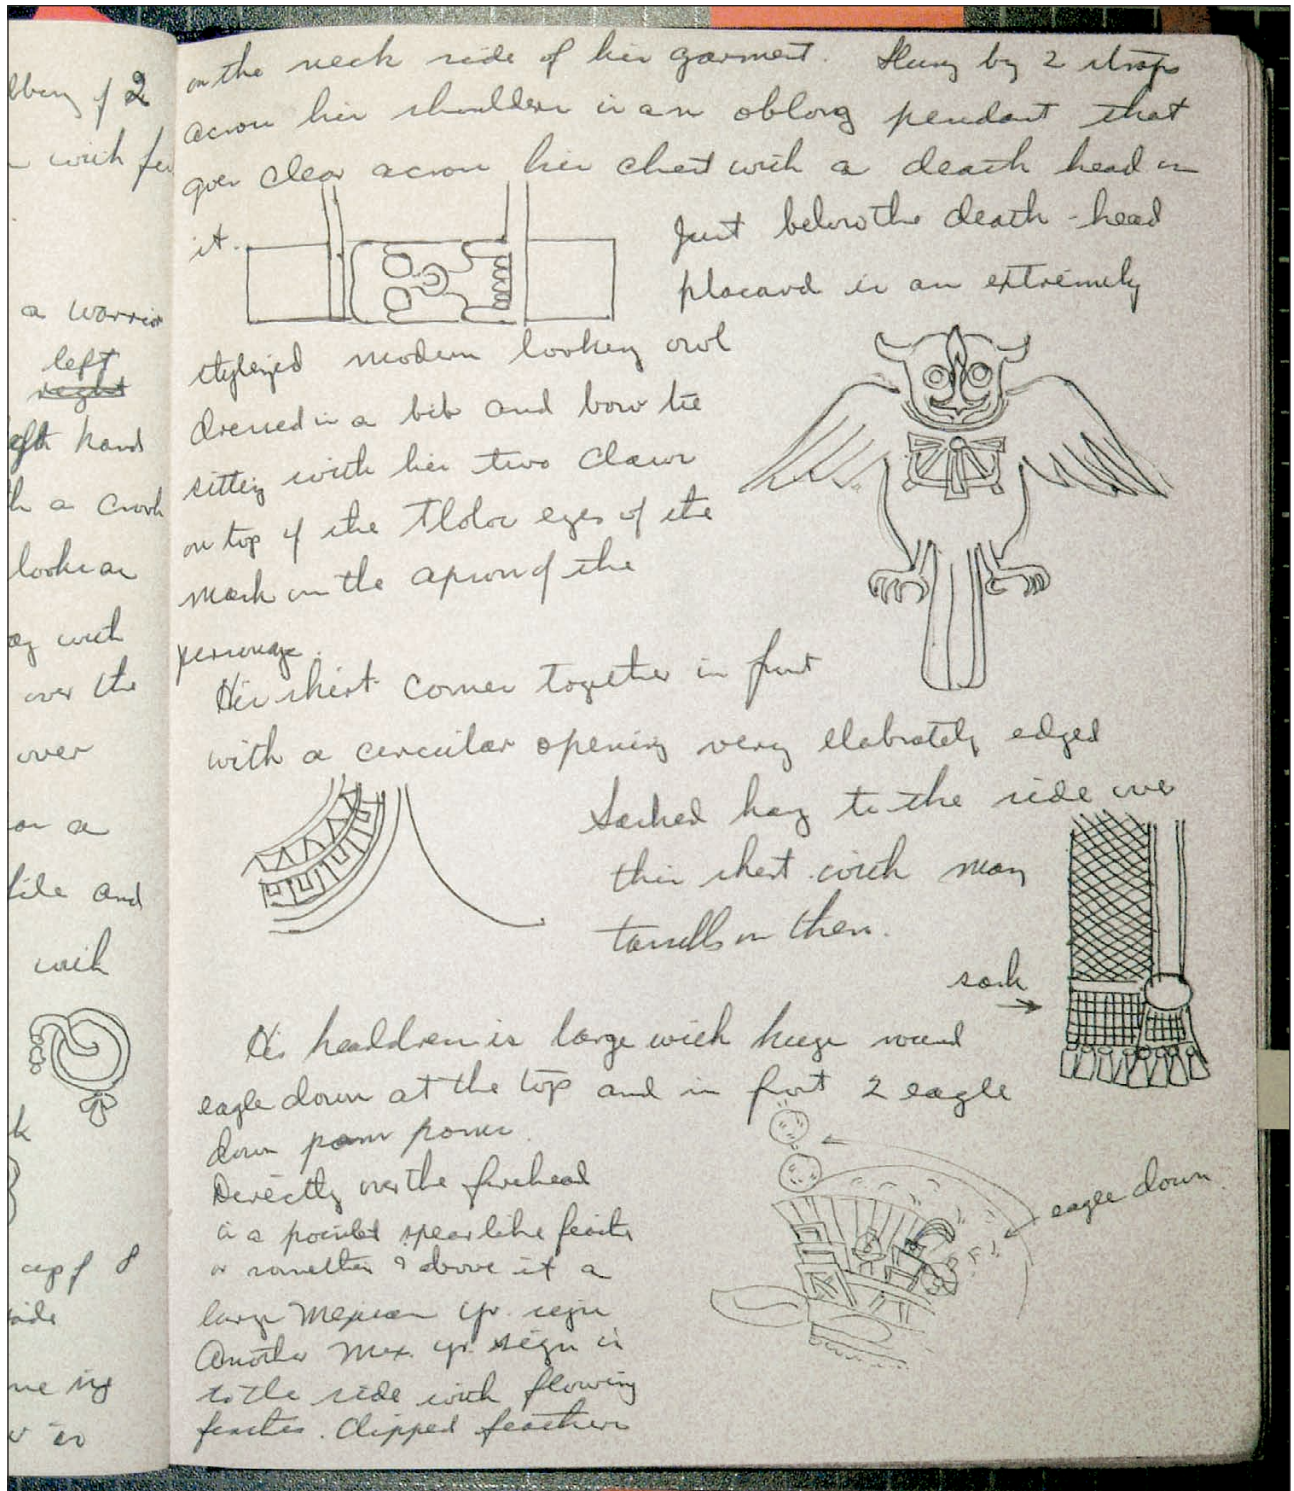 bbing of 2
with
a warrior
left
right
left hand
a crook
looks as
with
over the
over
on a
and
with
cap of 8
side
on the neck side of his garment. Hung by 2 straps
across his shoulders is an oblong pendant that
goes clear across his chest with a death head in
it.
Just below the death-head
placard is an extremely
stylized modern looking owl
dressed in a bib and bow tie
sitting with his two claws
on top of the Tlaloc eyes of the
mask on the apron of the
personage.
His skirt comes together in front
with a circular opening very elabrately edged
Sashed hang to the side over
this skirt with many
tassells on them.
sash
His headdress is large with huge round
eagle down at the top and in front 2 eagle
down pom poms.
Directly over the forehead
is a pointed spear like feather
or something & above it a
large Mexican yr. sign
Another Mex. yr. sign is
to the side with flowing
feathers. Clipped feathers
eagle down